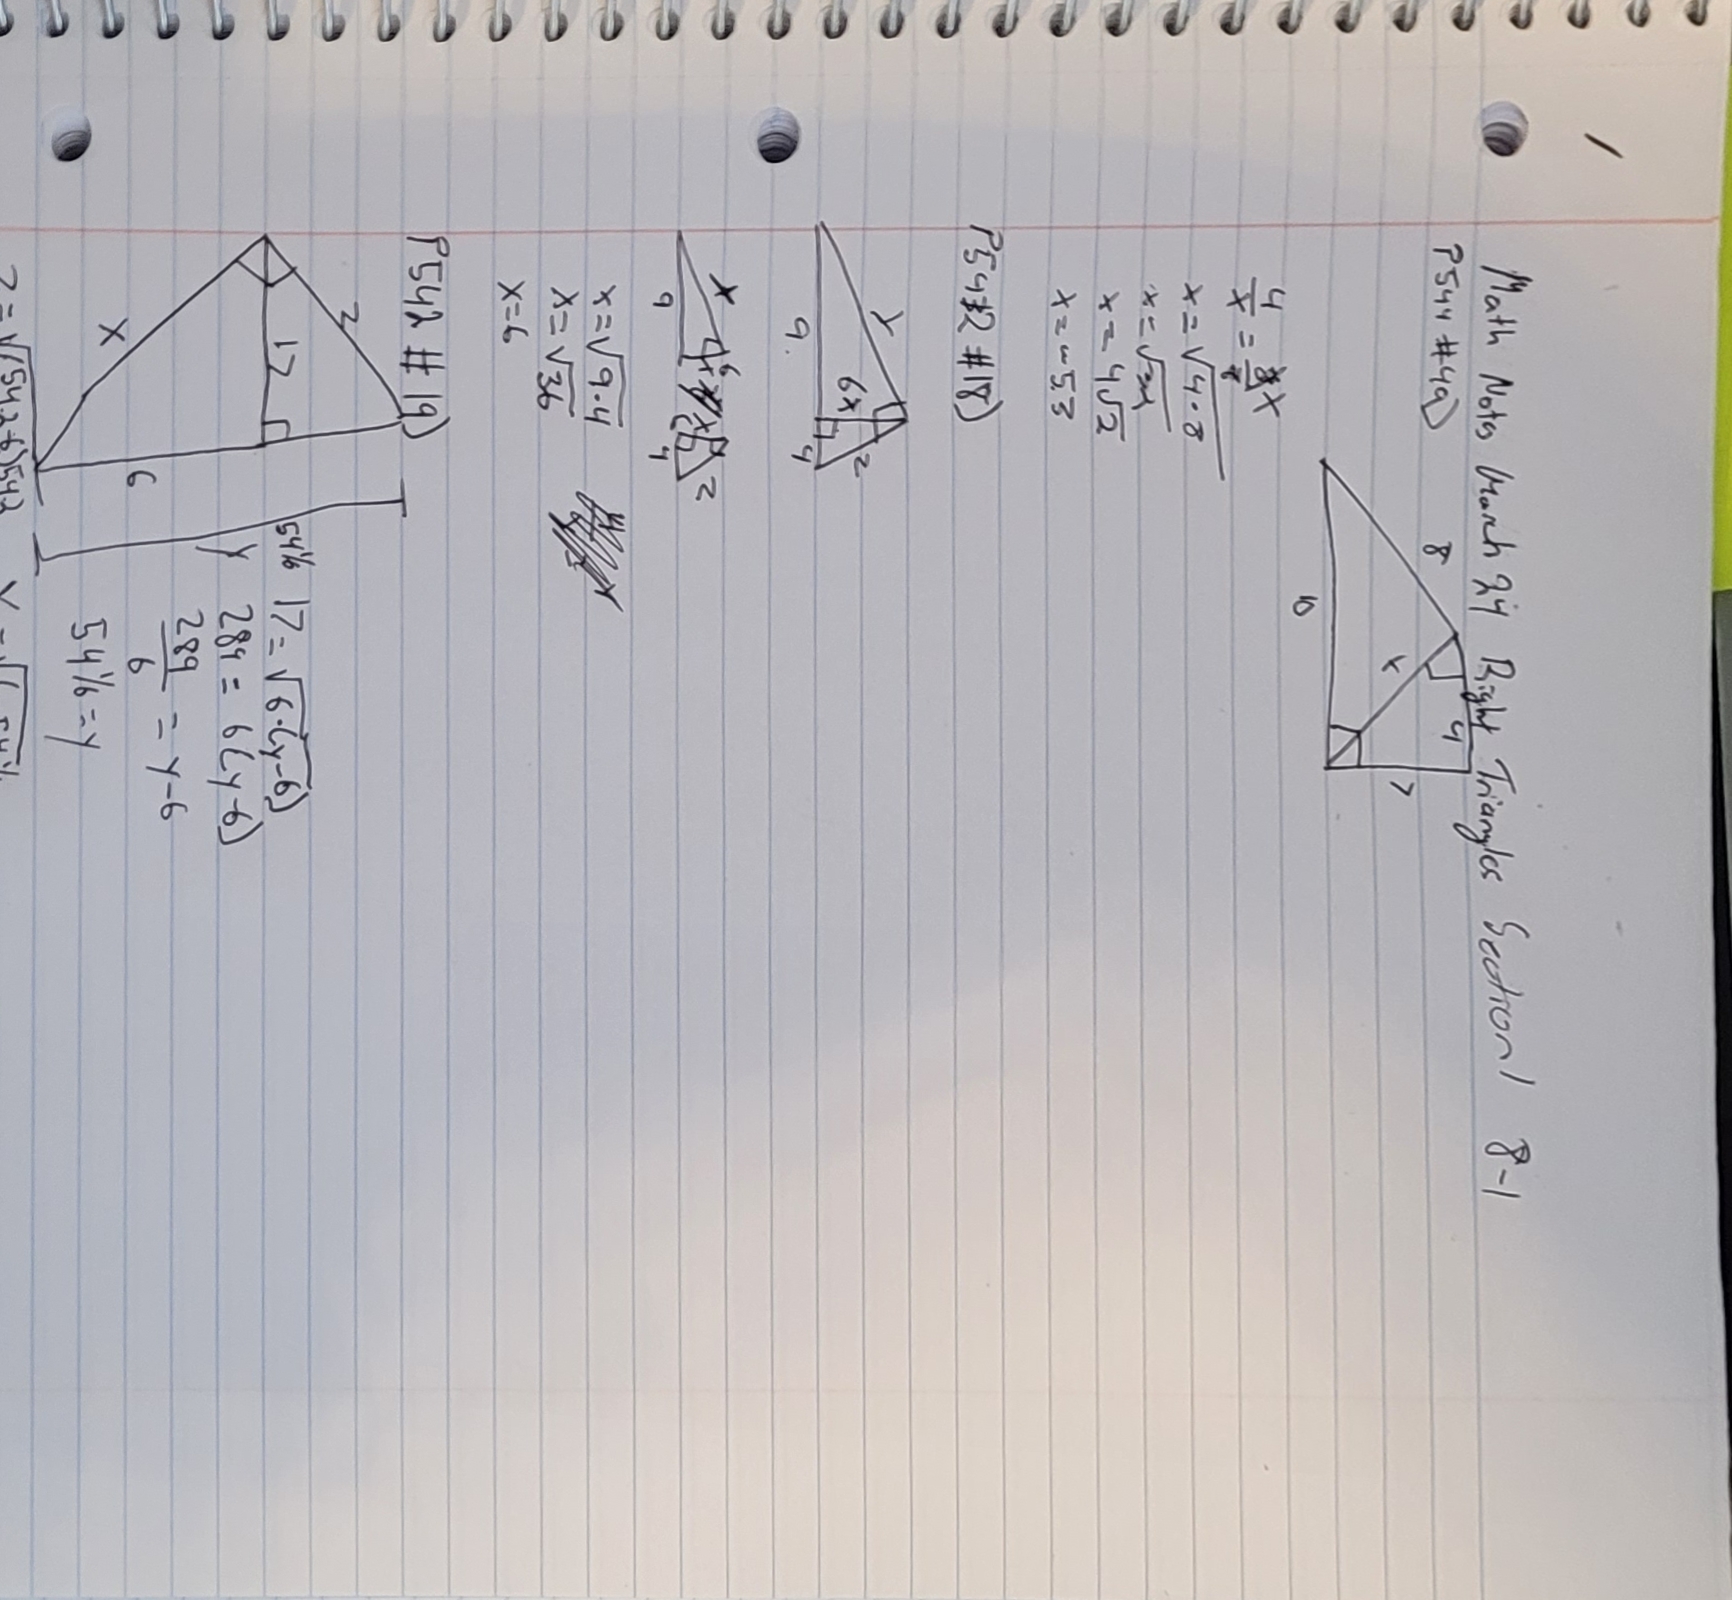 Math Notes March 24 Right Triangles Section 8-1
P544 #49)
8
4
x
7
10
4/x = x/8
x=√4·8
x=√
x=4√2
x=~5.3
P542 #18)
y
6x
z
9
4
x
6
9
z
4
x=√9·4
x=√36
x=6
P542 #19)
z
17
x
6
y
54 1/6
17=√6·(y-6)
289=6(y-6)
289/6=y-6
54 1/6=y